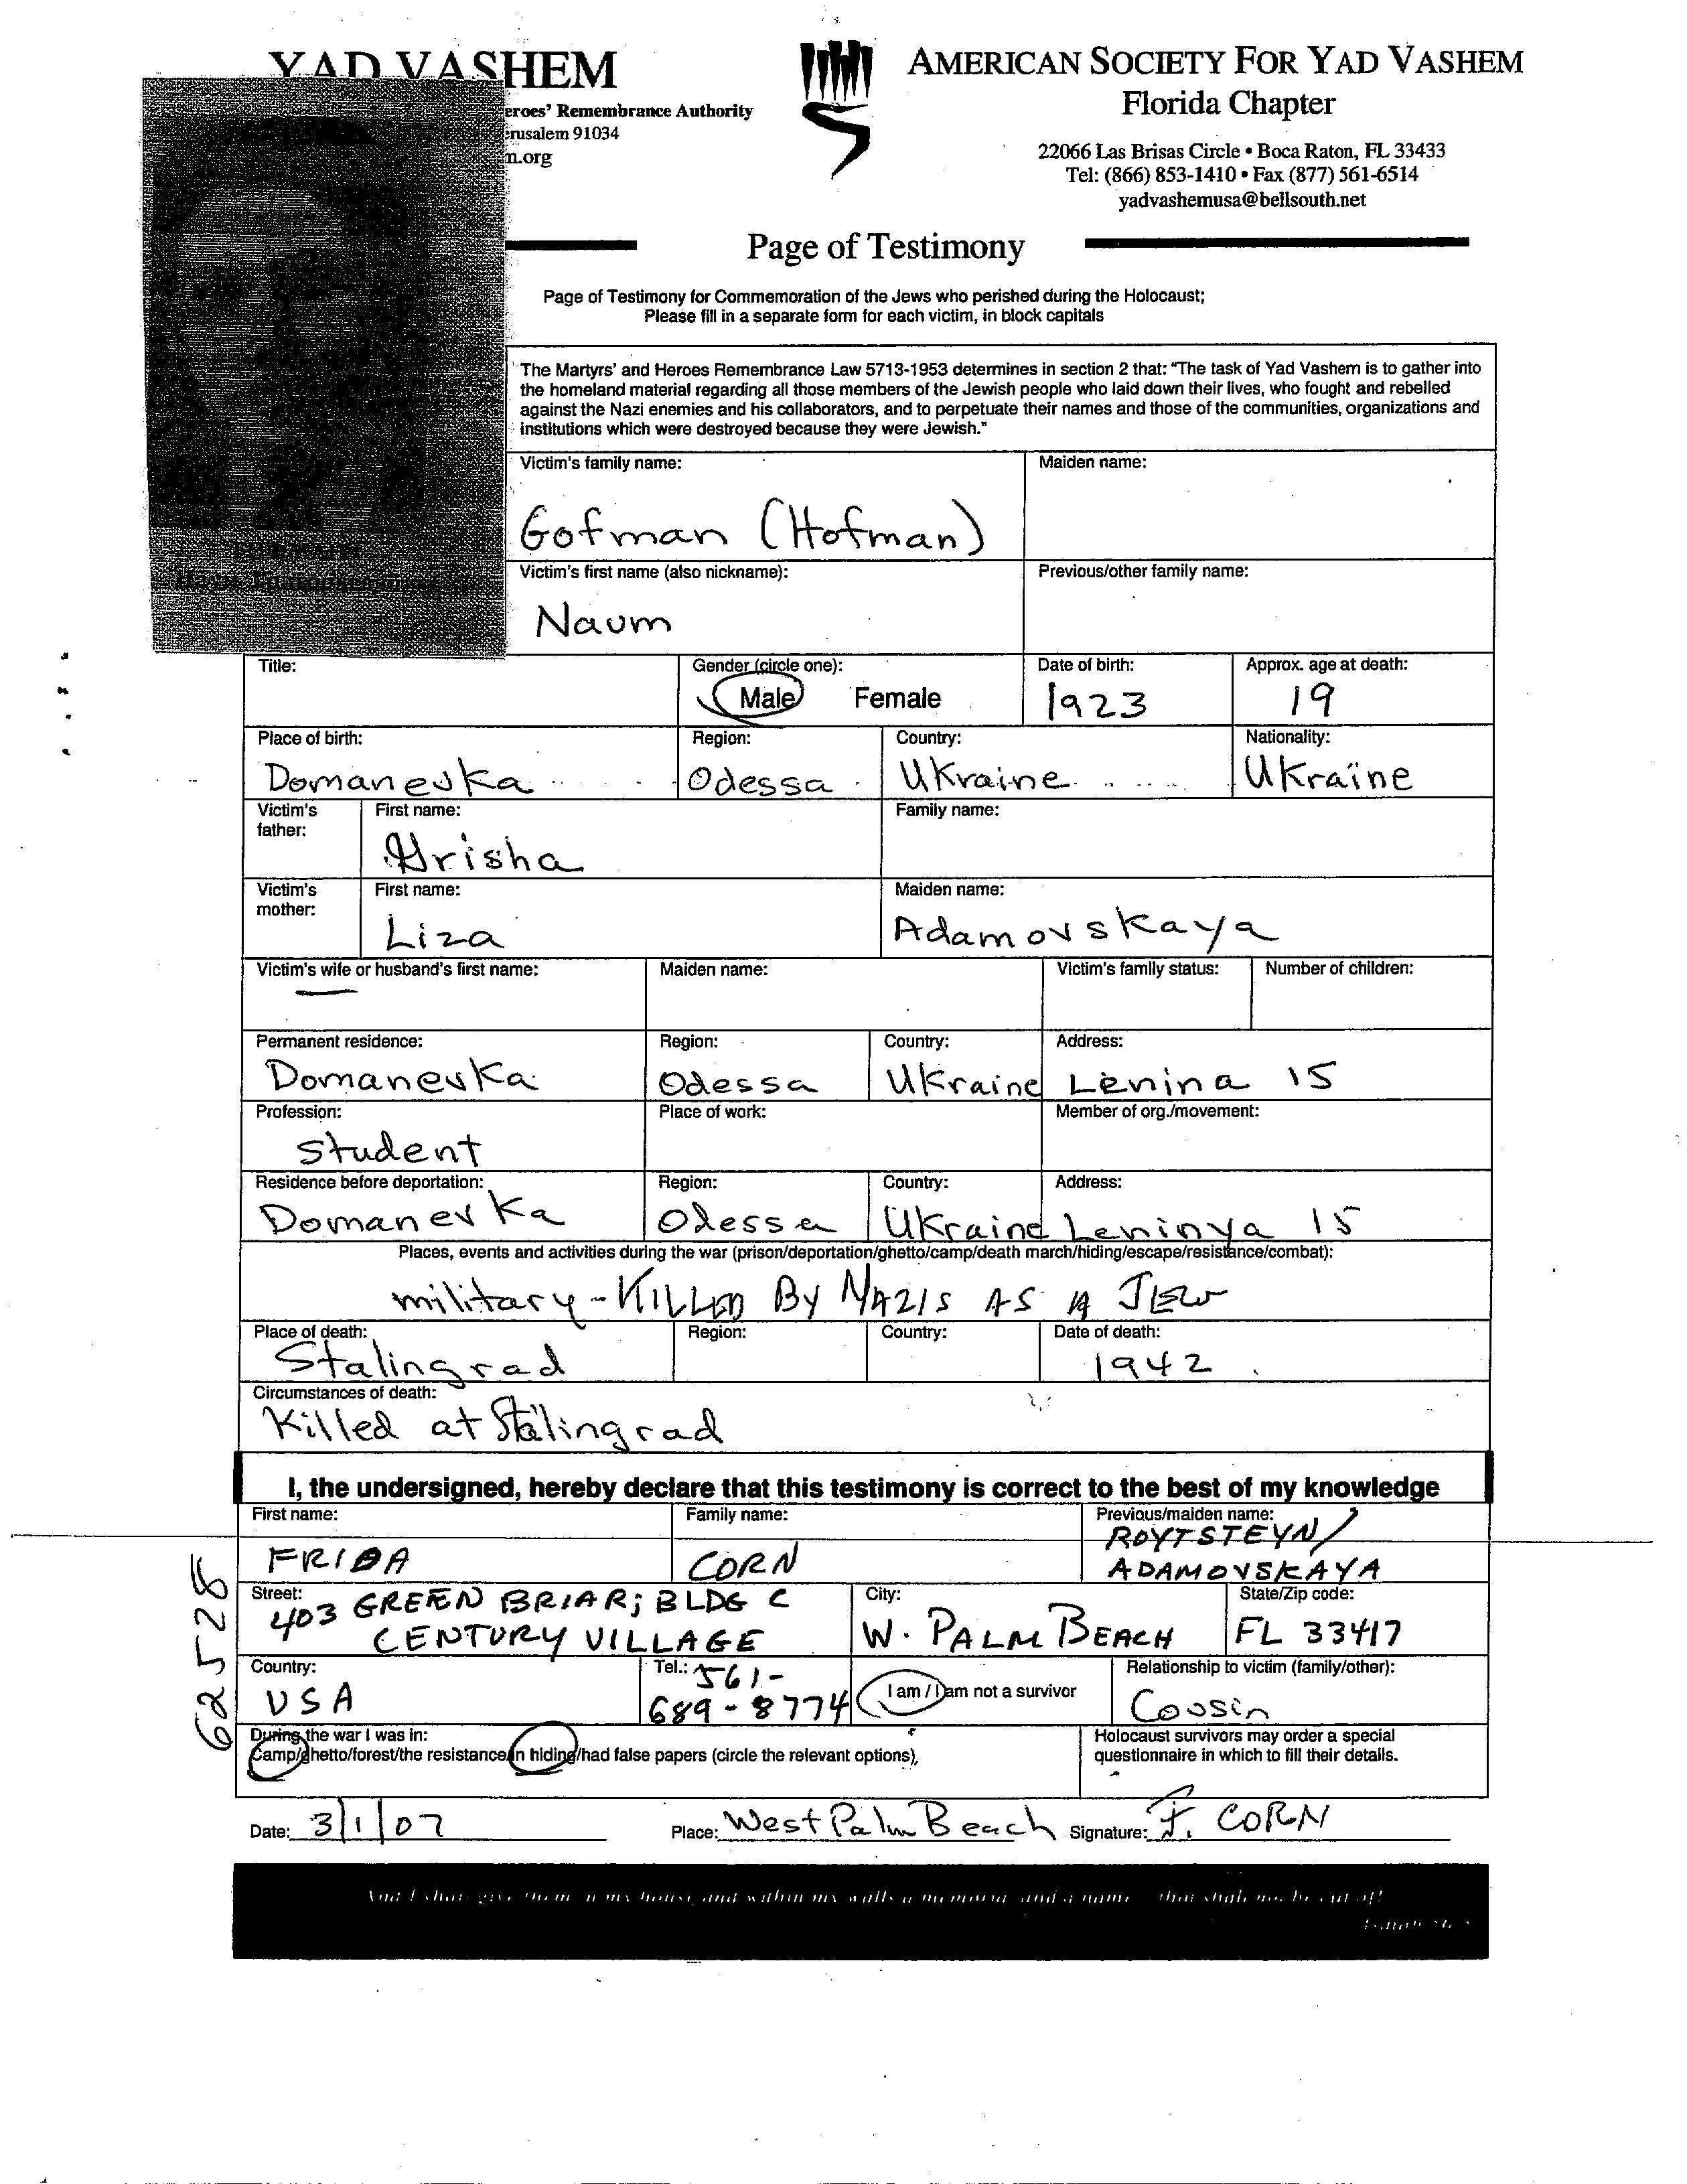 YAD VASHEM
eroes' Remembrance Authority
erusalem 91034
n.org
AMERICAN SOCIETY FOR YAD VASHEM
Florida Chapter
22066 Las Brisas Circle • Boca Raton, FL 33433
Tel: (866) 853-1410 • Fax (877) 561-6514
yadvashemusa@bellsouth.net
Page of Testimony
Page of Testimony for Commemoration of the Jews who perished during the Holocaust;
Please fill in a separate form for each victim, in block capitals
The Martyrs' and Heroes Remembrance Law 5713-1953 determines in section 2 that: "The task of Yad Vashem is to gather into
the homeland material regarding all those members of the Jewish people who laid down their lives, who fought and rebelled
against the Nazi enemies and his collaborators, and to perpetuate their names and those of the communities, organizations and
institutions which were destroyed because they were Jewish."
Victim's family name: Maiden name:
Gofman (Hofman)
Victim's first name (also nickname): Previous/other family name:
Naum
Title: Gender (circle one): Date of birth: Approx. age at death:
Male Female 1923 19
Place of birth: Region: Country: Nationality:
Domanevka Odessa Ukraine Ukraine
Victim's father: First name: Family name:
Grisha
Victim's mother: First name: Maiden name:
Liza Adamovskaya
Victim's wife or husband's first name: Maiden name: Victim's family status: Number of children:
Permanent residence: Region: Country: Address:
Domanevka Odessa Ukraine Lenina 15
Profession: Place of work: Member of org./movement:
student
Residence before deportation: Region: Country: Address:
Domanevka Odessa Ukraine Leninya 15
Places, events and activities during the war (prison/deportation/ghetto/camp/death march/hiding/escape/resistance/combat):
military - KILLED BY NAZIS AS A JEW
Place of death: Region: Country: Date of death:
Stalingrad 1942
Circumstances of death:
Killed at Stalingrad
I, the undersigned, hereby declare that this testimony is correct to the best of my knowledge
First name: Family name: Previous/maiden name:
FRIDA CORN ROYTSTEYN/
ADAMOVSKAYA
Street: City: State/Zip code:
403 GREEN BRIAR; BLDG C
CENTURY VILLAGE W. PALM BEACH FL 33417
Country: Tel.: Relationship to victim (family/other):
USA 561-
689-8774 I am / I am not a survivor Cousin
During the war I was in:
Camp/ghetto/forest/the resistance/in hiding/had false papers (circle the relevant options),
Holocaust survivors may order a special
questionnaire in which to fill their details.
Date: 3/1/07 Place: West Palm Beach Signature: F. CORN
And I shall give them in my house and within my walls a memorial and a name that shall not be cut off
625528